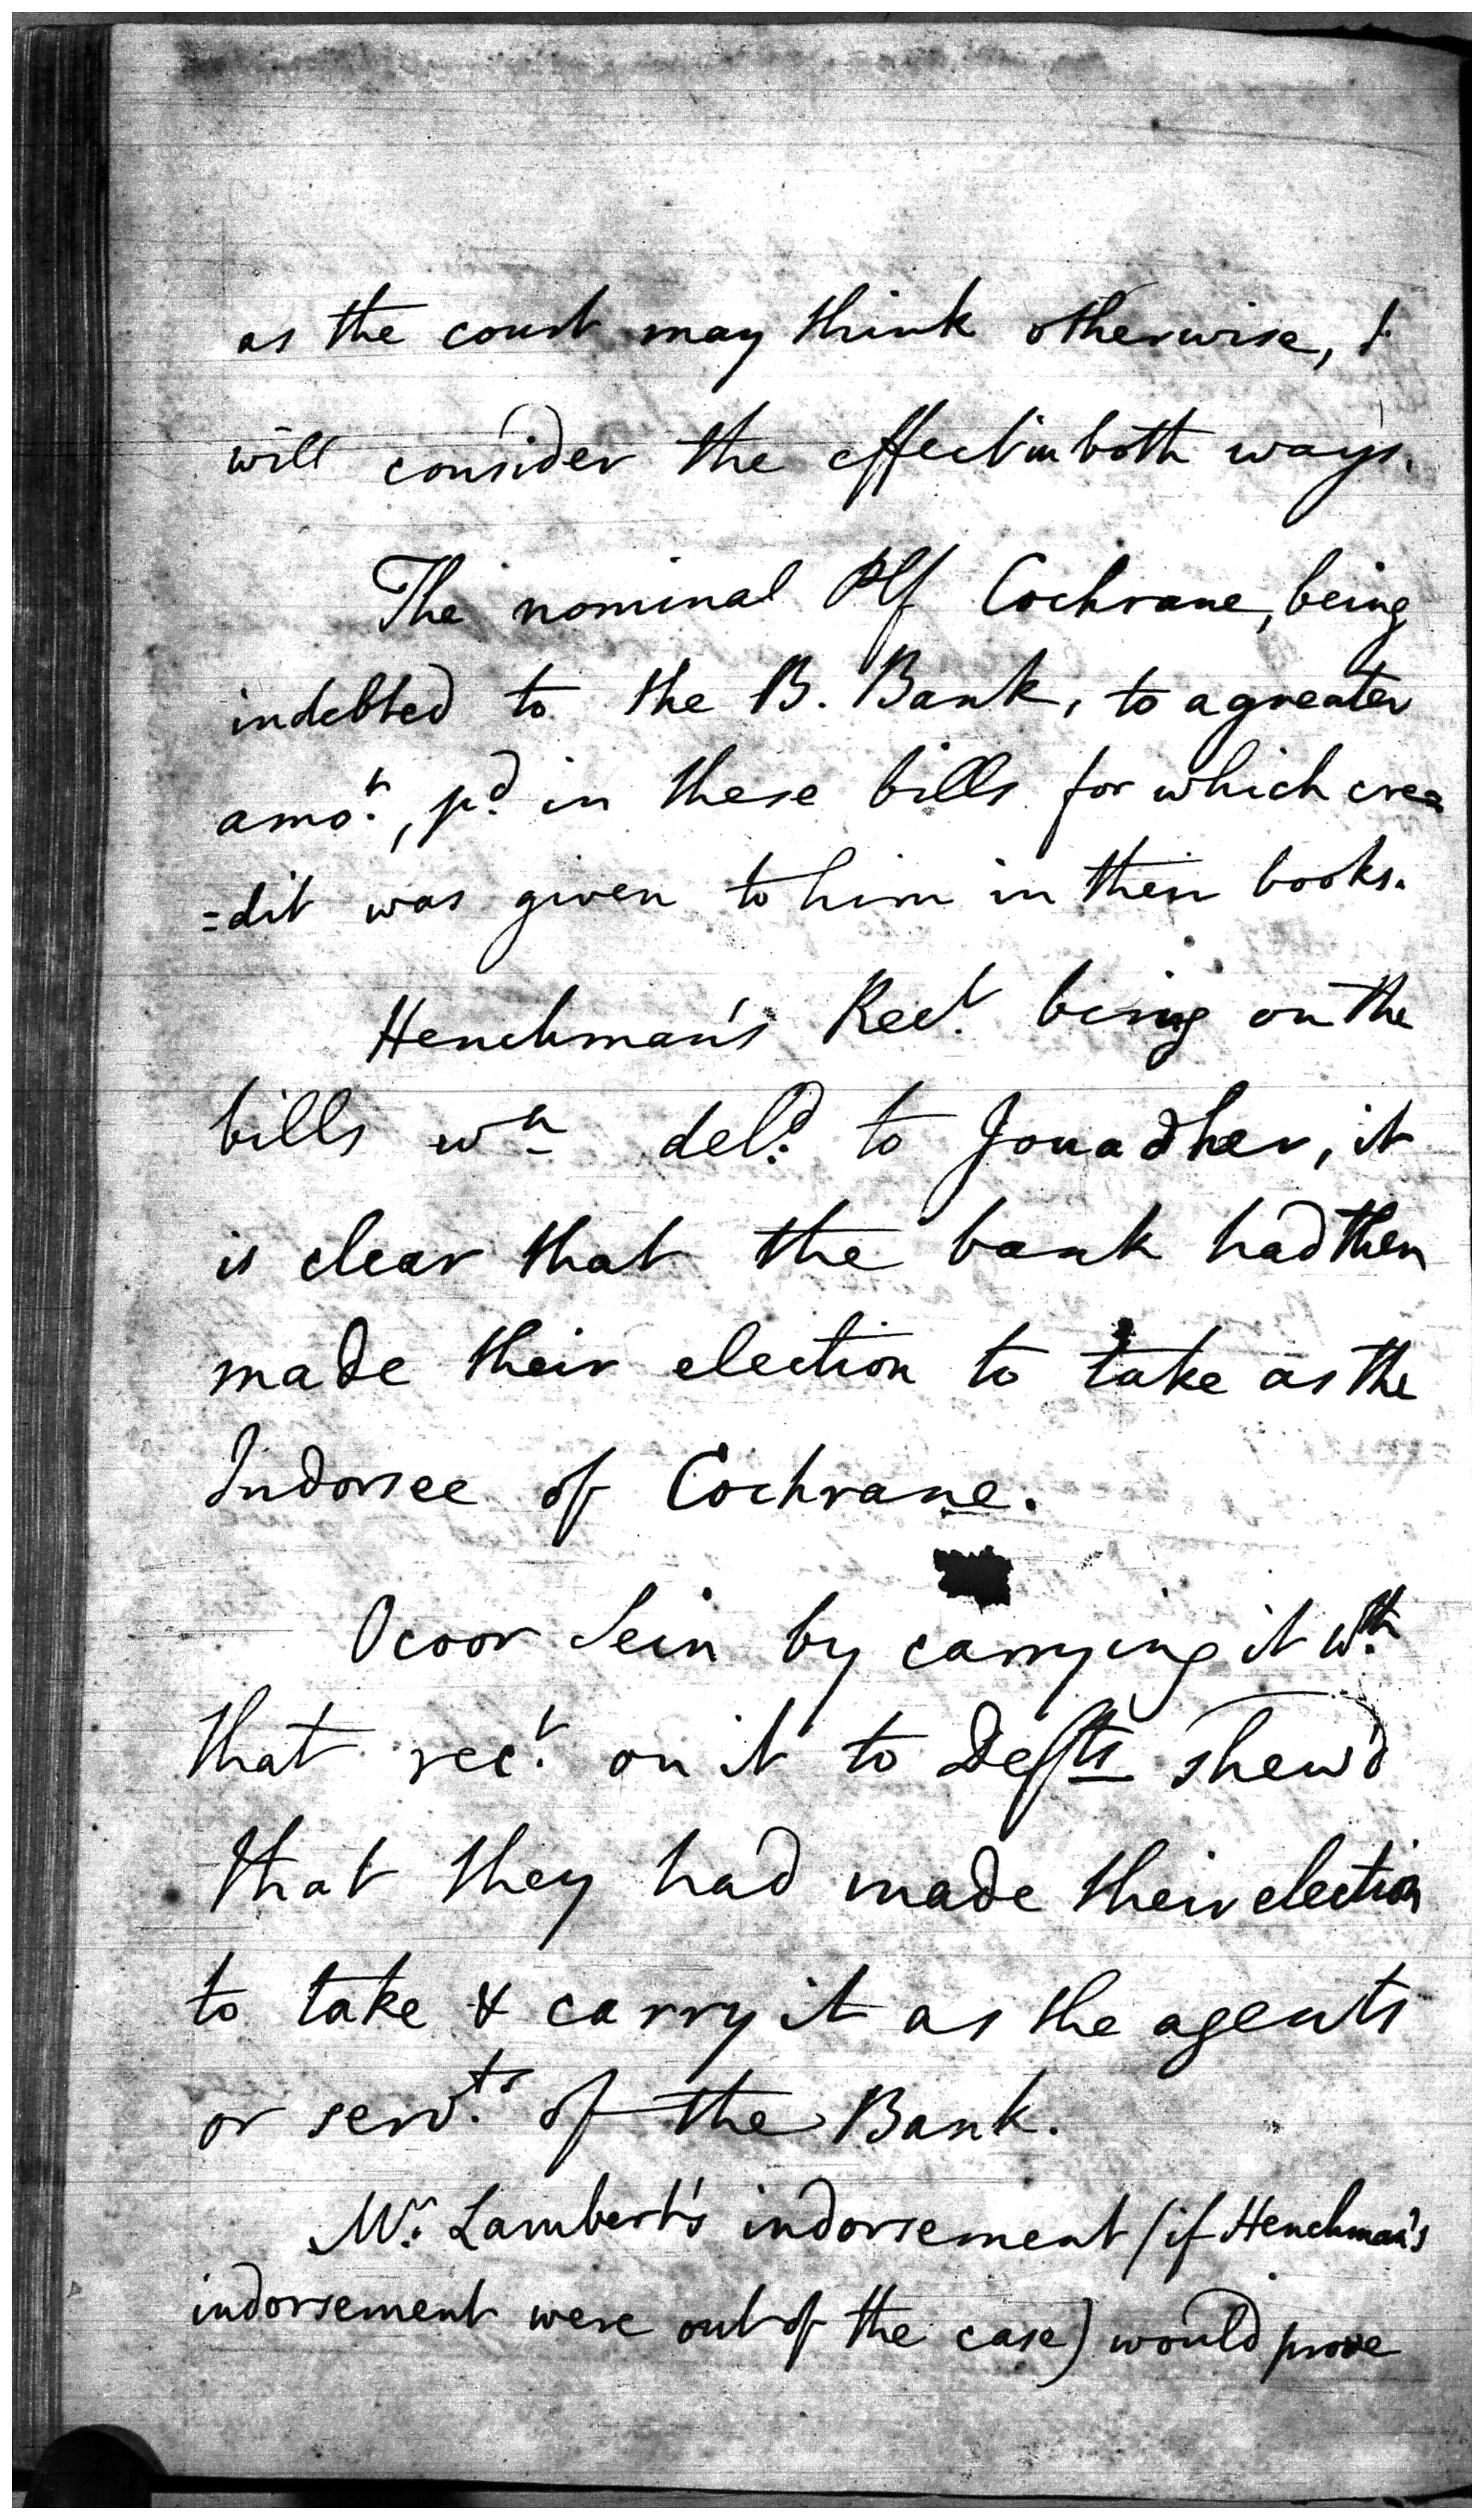 as the court may think otherwise, I
will consider the effect in both ways.
The nominal Plf Cochrane, being
indebted to the B. Bank, to a greater
amo.t, p.d in these bills for which cre=
=dit was given to him in their books.
Henchman's Rect. being on the
bills wn del.d to Jouadher, it
is clear that the bank had then
made their election to take as the
Indorsee of Cochrane.
Ocoor Sein by carrying it wth
that rect. on it to Defts shew'd
that they had made their election
to take & carry it as the agents
or serv.ts of the Bank.
Mr. Lambert's indorsement (if Henchman's
indorsement were out of the case) would prove